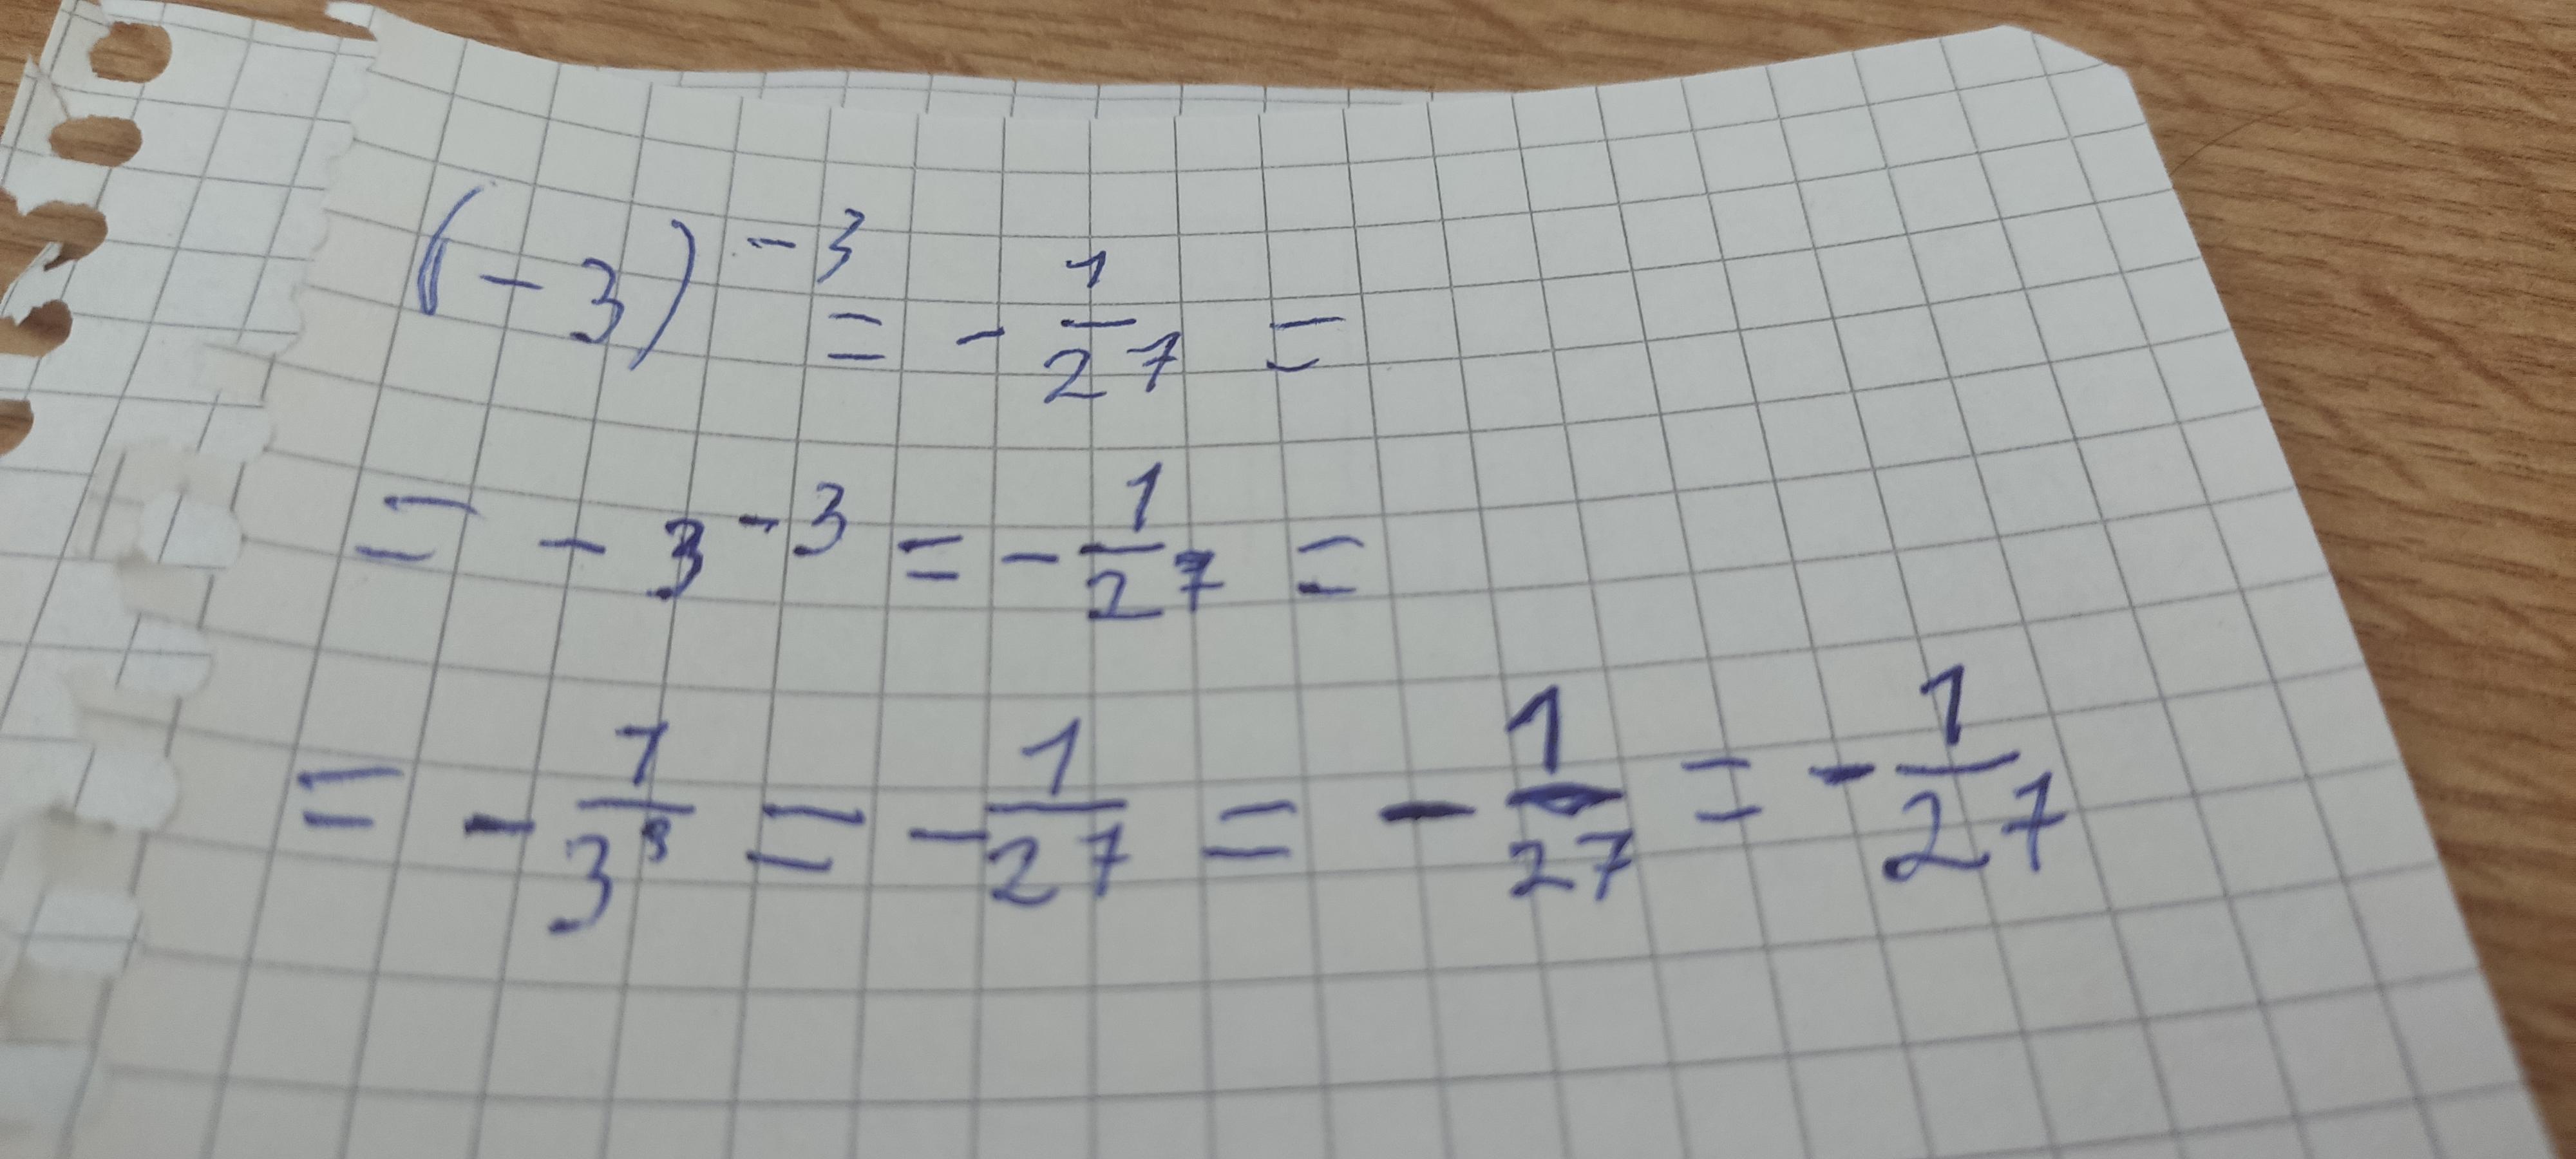 (-3)^{-3} = -\frac{1}{27} =
= -3^{-3} = -\frac{1}{27} =
= -\frac{1}{3^3} = -\frac{1}{27} = -\frac{1}{27} = -\frac{1}{27}